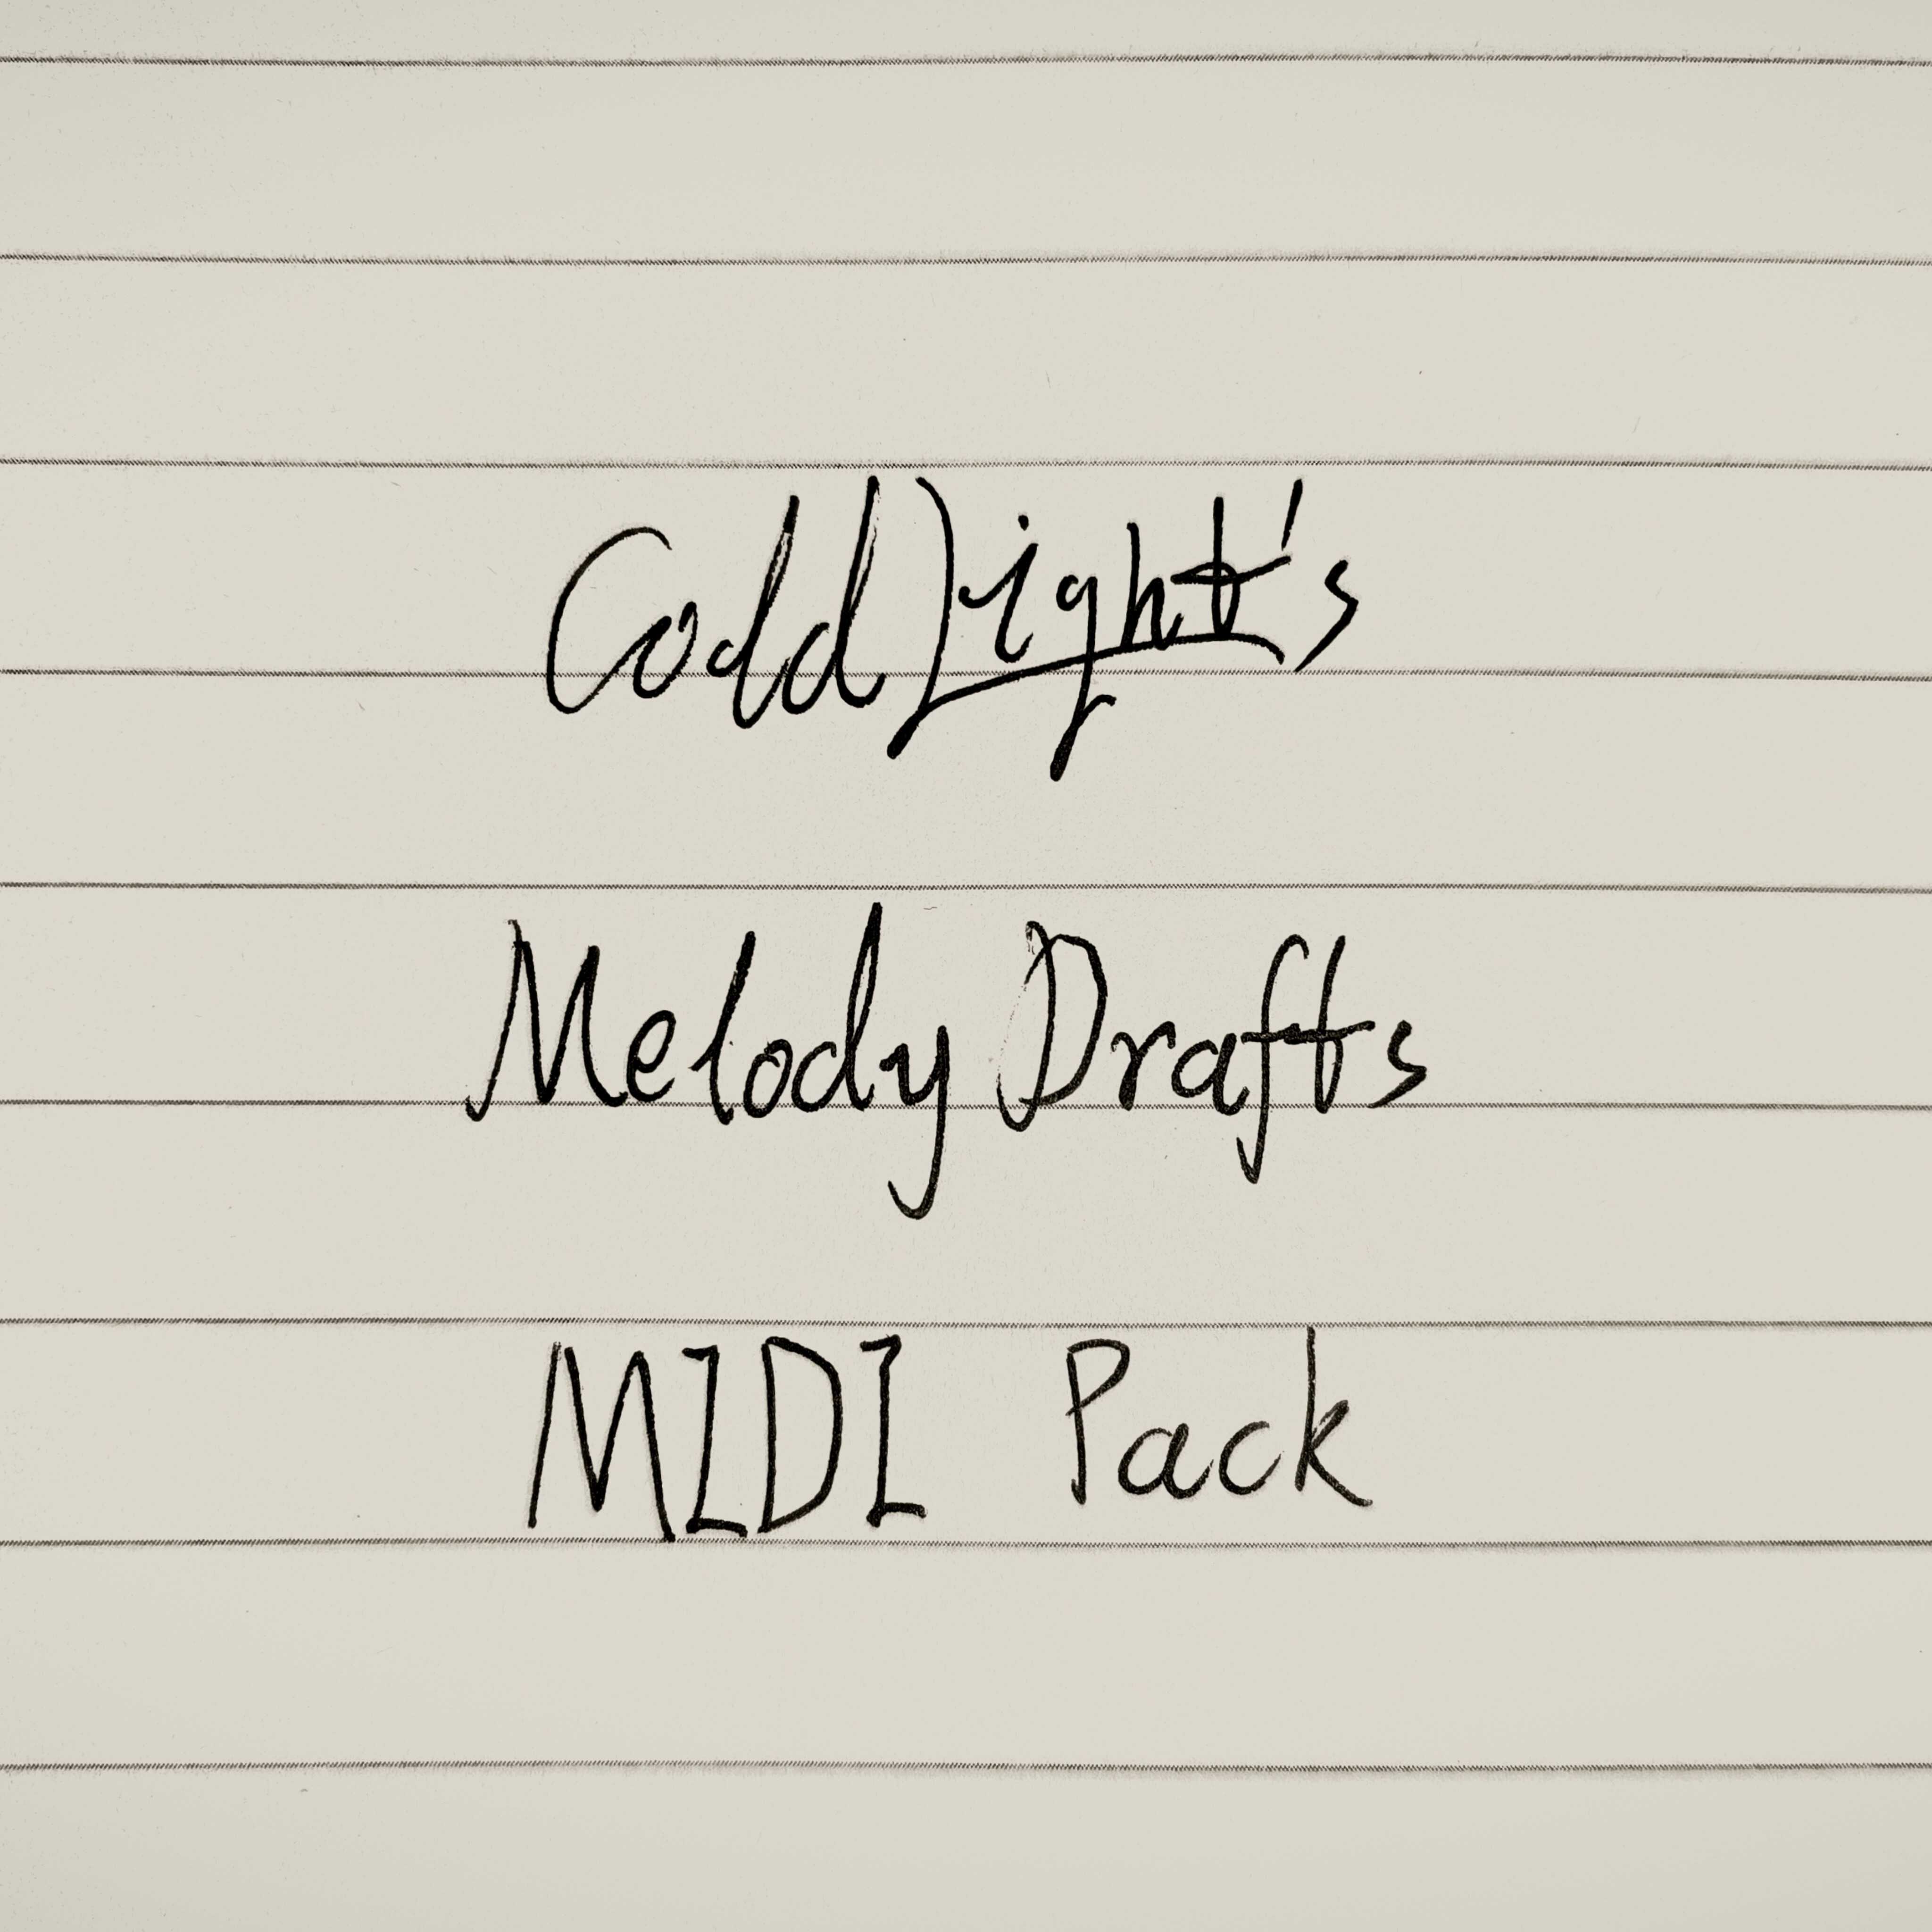 ColdLight's
Melody Drafts
MIDI Pack